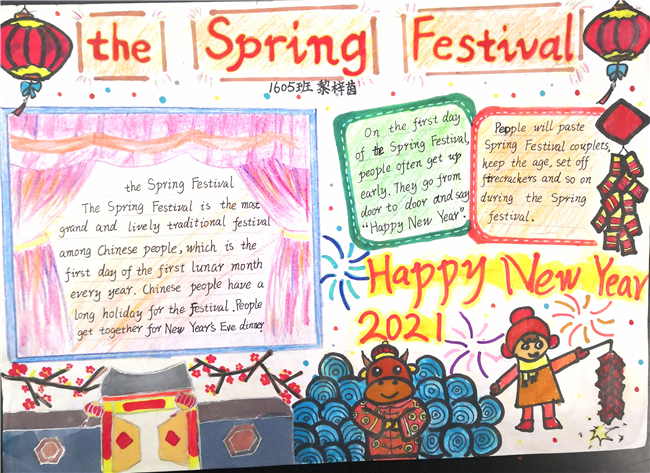 the Spring Festival
1605班 黎梓茵
the Spring Festival
The Spring Festival is the most
grand and lively traditional festival
among Chinese people, which is the
first day of the first lunar month
every year. Chinese people have a
long holiday for the festival. People
get together for New Year's Eve dinner
On the first day
of the Spring Festival,
people often get up
early. They go from
door to door and say
"Happy New Year".
People will paste
Spring Festival couplets,
keep the age, set off
firecrackers and so on
during the Spring
festival.
Happy New Year
2021